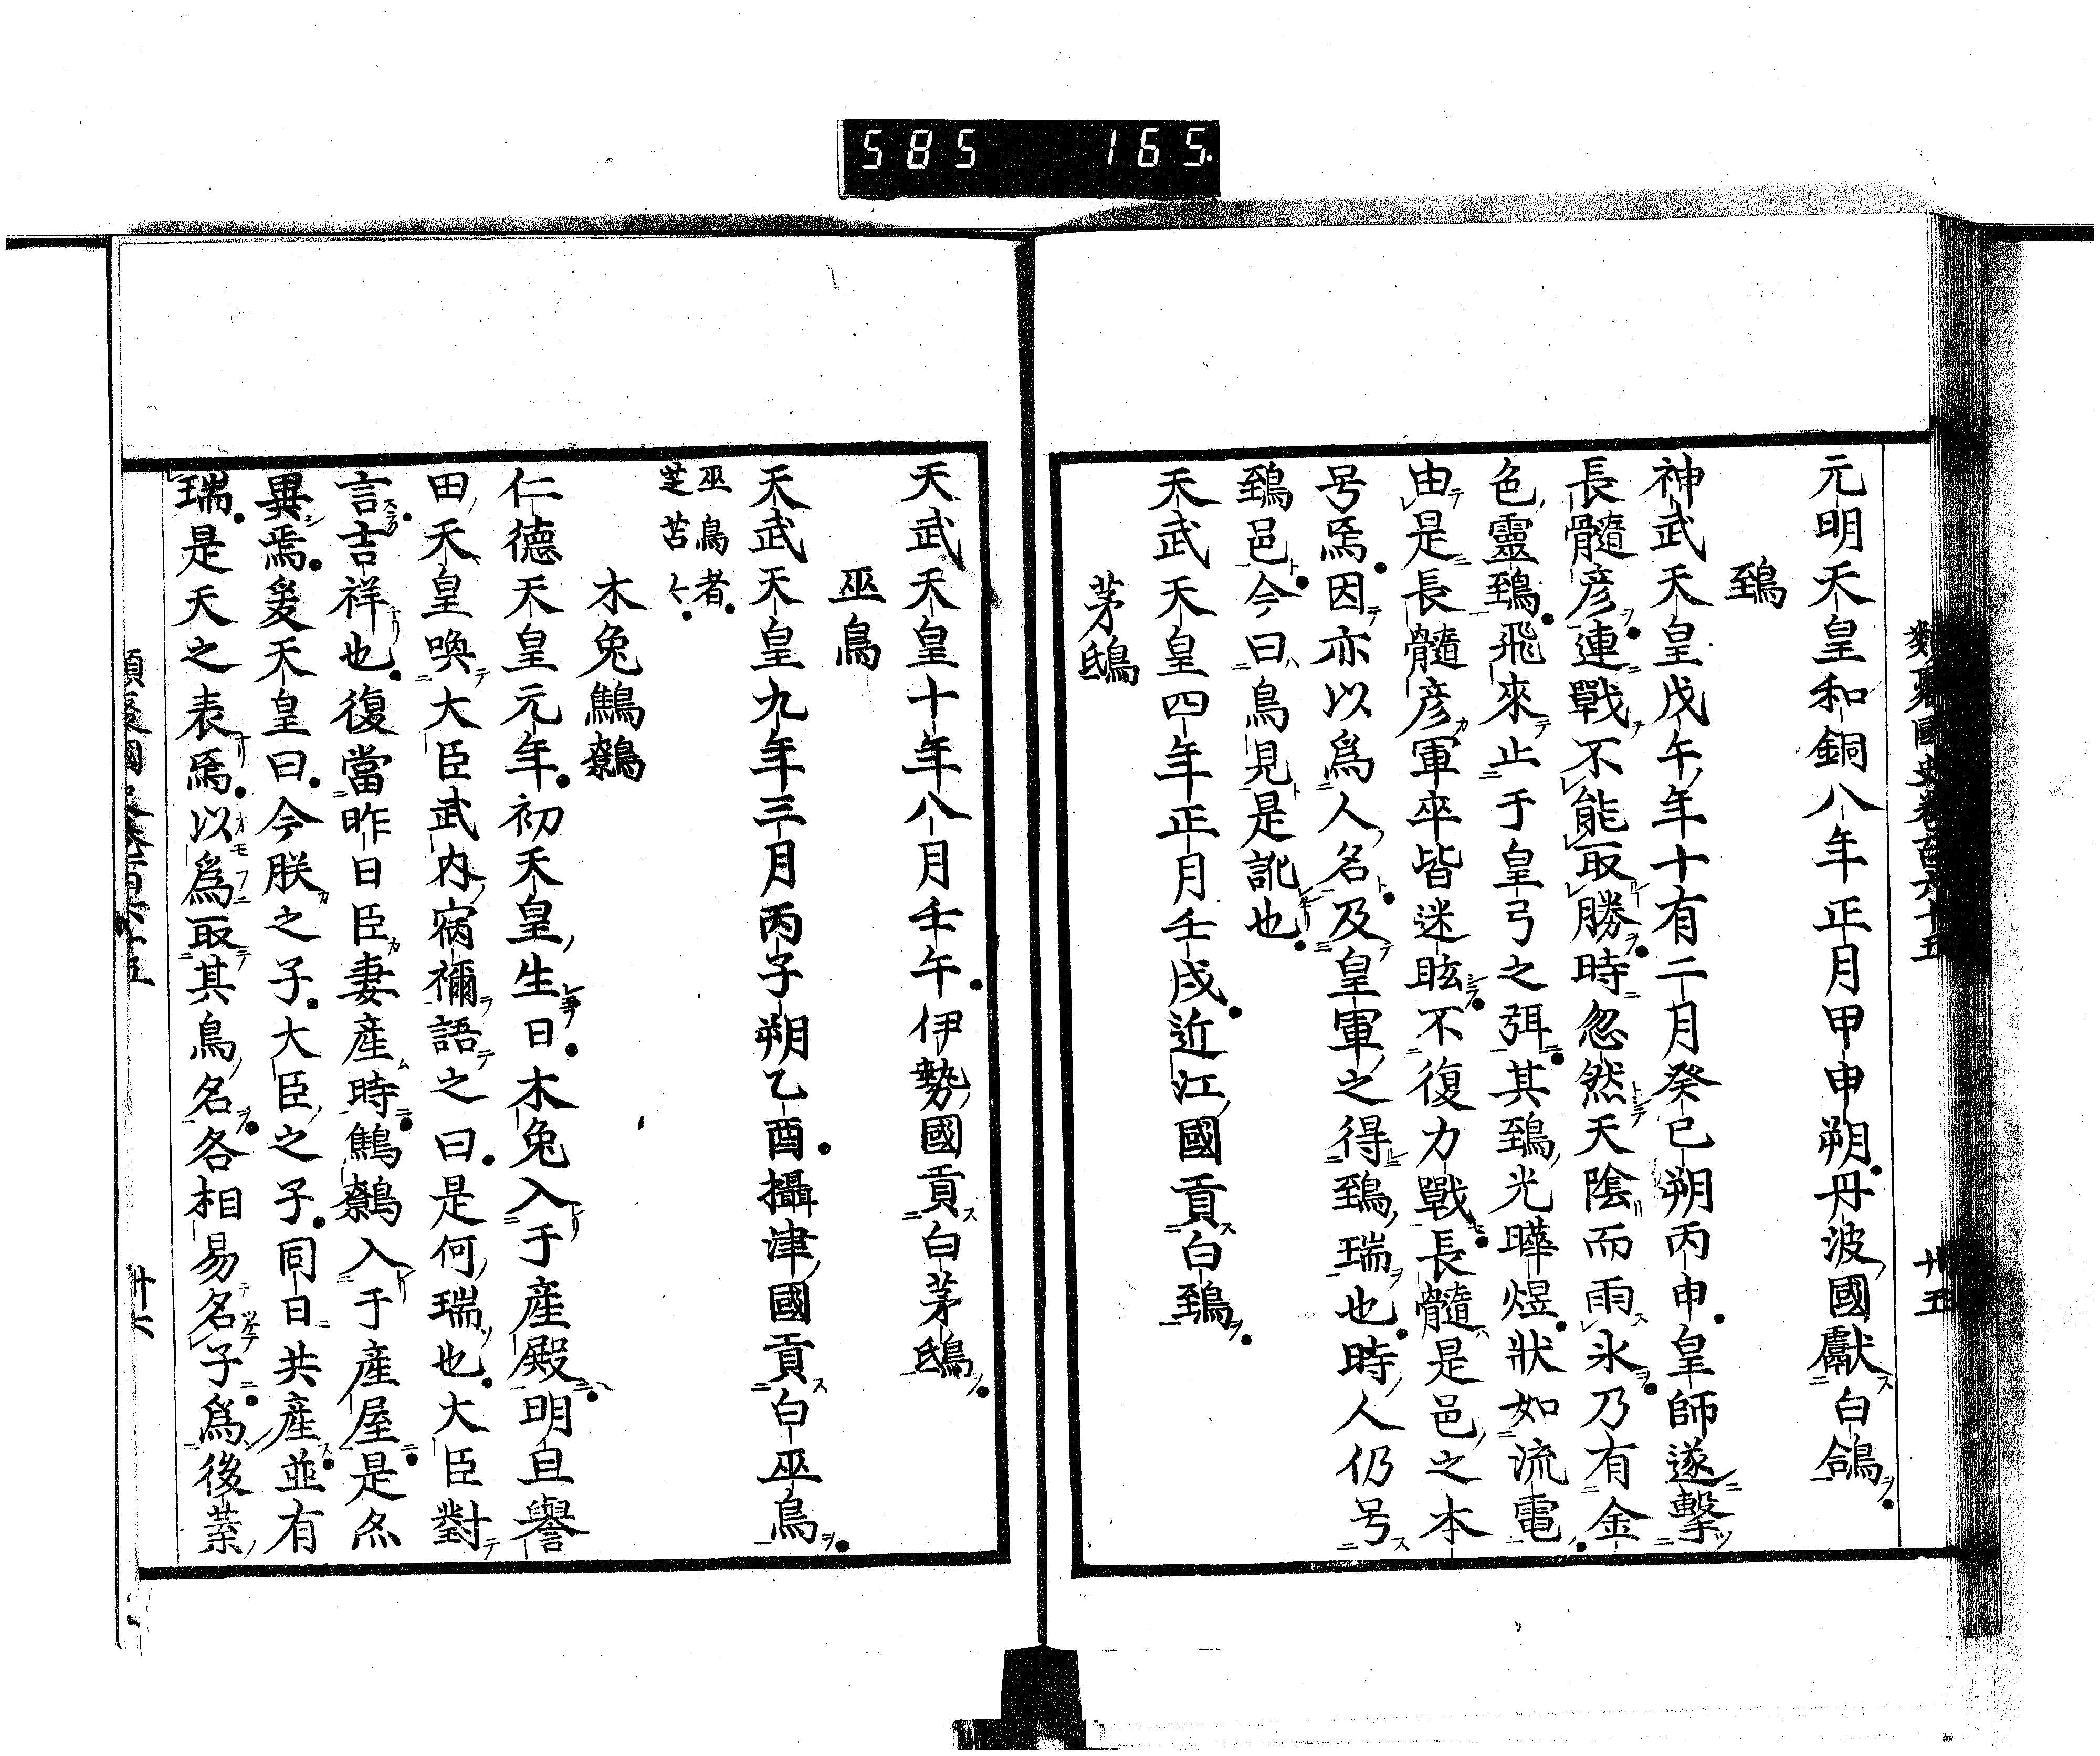 585 165.
類聚國史卷百六十五 卅五
元明天皇和銅八年正月甲申朔丹波國獻白鴿
鵄
神武天皇戊午年十有二月癸巳朔丙申皇師遂擊
長髓彥連戰不能取勝時忽然天陰而雨氷乃有金
色靈鵄飛來止于皇弓之弭其鵄光曄煜狀如流電
由是長髓彥軍卒皆迷眩不復力戰長髓是邑之本
号焉因亦以爲人名及皇軍之得鵄瑞也時人仍号
鵄邑今曰鳥見是訛也
天武天皇四年正月壬戌近江國貢白鵄
茅鴟
天武天皇十年八月壬午伊勢國貢白茅鴟
巫鳥
天武天皇九年三月丙子朔乙酉攝津國貢白巫鳥
巫鳥者
芝苫々
木兔鷦鷯
仁德天皇元年初天皇生日木兔入于産殿明旦譽
田天皇喚大臣武内宿禰語之曰是何瑞也大臣對
言吉祥也復當昨日臣妻産時鷦鷯入于産屋是亦
異焉爰天皇曰今朕之子大臣之子同日共産並有
瑞是天之表焉以爲取其鳥名各相易名子爲後葉
類聚國史卷百六十五 卅六